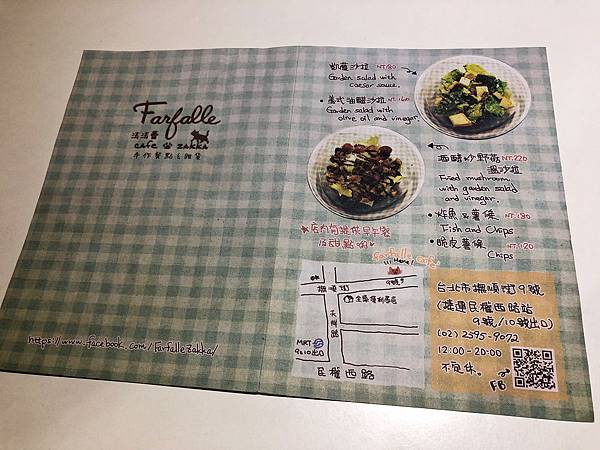 Farfalle
CAFE ZAKKA
手作餐點&雜貨
https://www.facebook.com/FarfalleZakka/
凱薩沙拉 NT.180
Garden salad with
caesar sauce.
義式油醋沙拉 NT.160
Garden salad with
olive oil and vinegar.
酒醋炒野菇 NT.220
溫沙拉
Fried mushroom
with garden salad
and vinegar.
炸魚&薯條 NT.180
Fish and Chips
脆皮薯條 NT.120
Chips
店內有提供早午餐
&甜點喲
Farfalle Cafe
Here!
撫順街
9號
MRT
9&10出口
民權西路
台北市撫順街9號
(捷運民權西路站
9號/10號出口)
(02)2595-9072
12:00-20:00
不定休。
FB